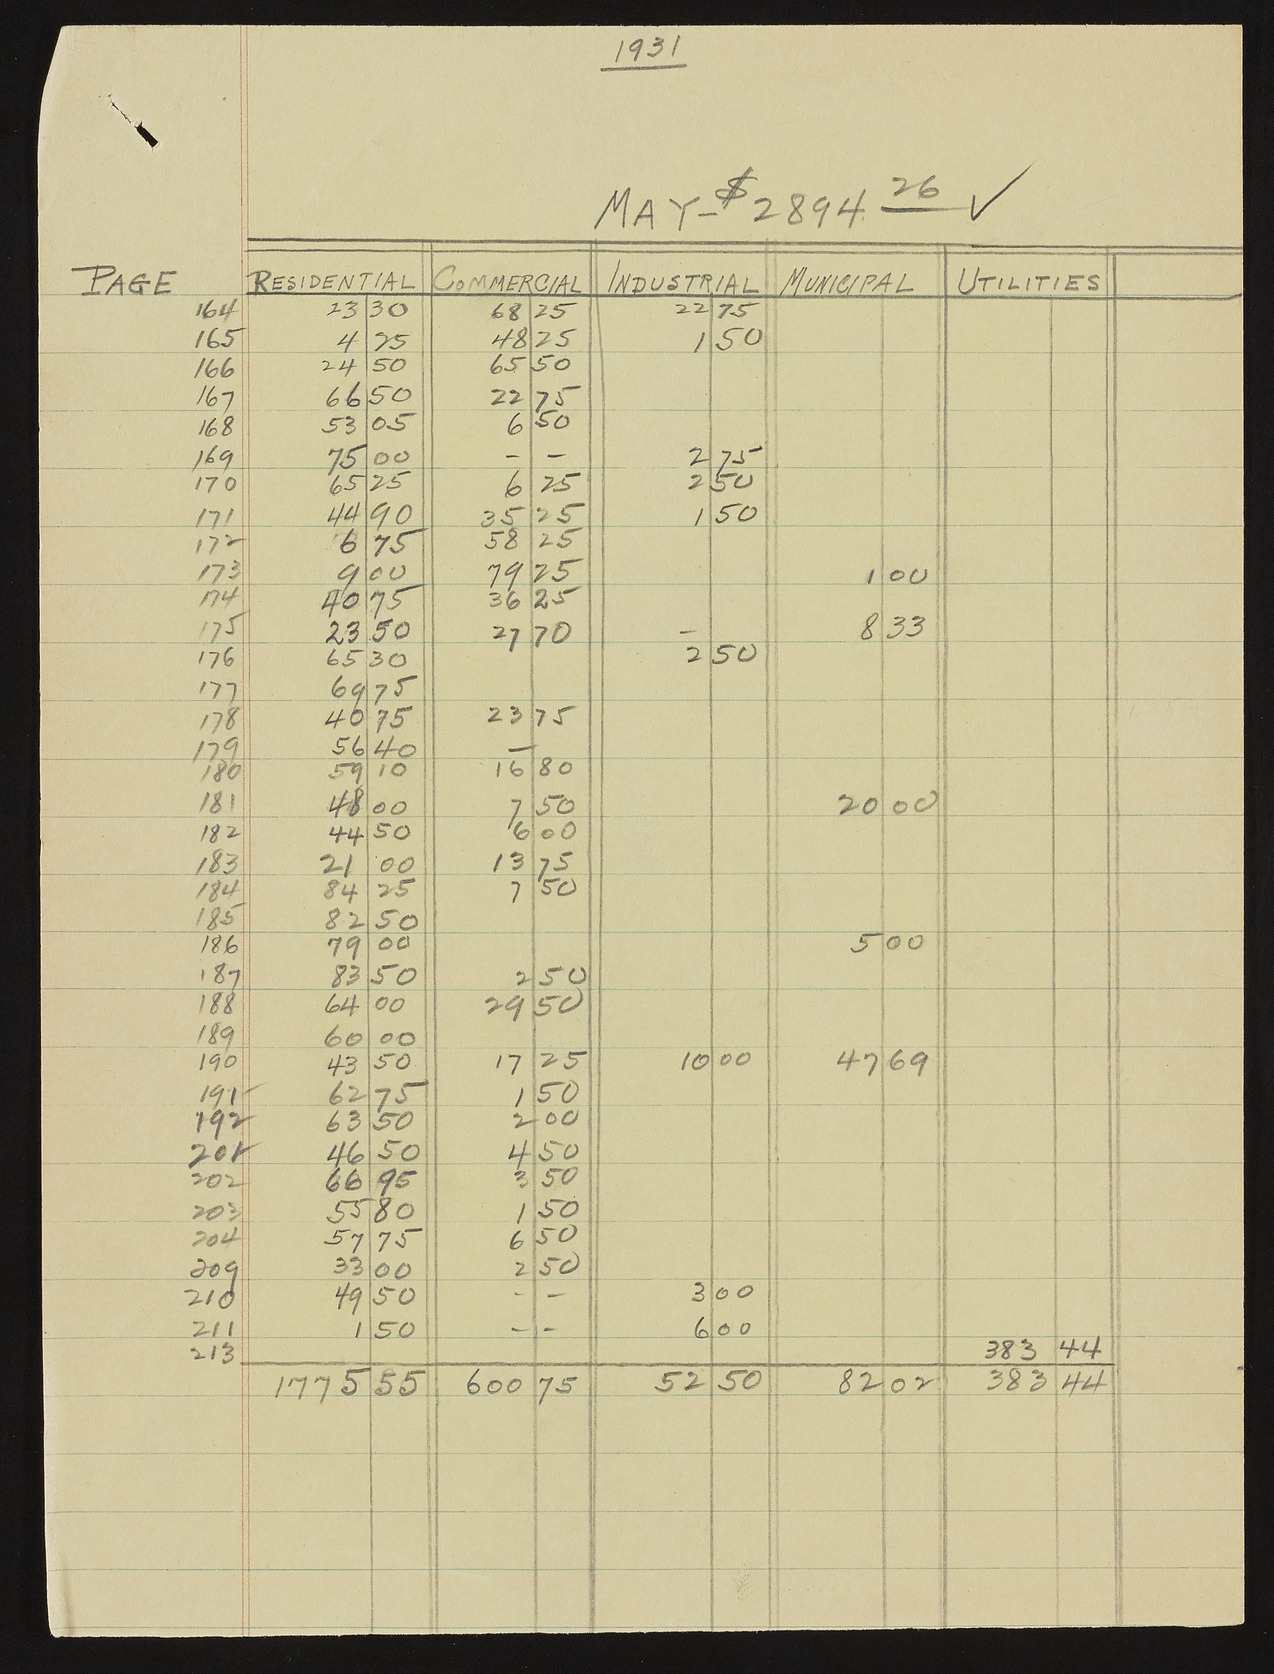 1931
MAY - $2894 26 ✓
PAGE RESIDENTIAL COMMERCIAL INDUSTRIAL MUNICIPAL UTILITIES
164 23 30 68 25 22 75
165 4 25 48 25 1 50
166 24 50 65 50
167 66 50 22 75
168 53 05 6 50
169 75 00 - - 2 75
170 65 25 6 25 2 50
171 44 90 35 25 1 50
172 6 75 58 25
173 9 00 79 25 1 00
174 40 75 36 25
175 23 50 27 70 - 8 33
176 65 30 2 50
177 69 75
178 40 75 23 75
179 56 40 -
180 59 10 16 80
181 48 00 7 50 20 00
182 44 50 6 00
183 21 00 13 75
184 84 25 7 50
185 82 50
186 79 00 5 00
187 83 50 2 50
188 64 00 29 50
189 60 00
190 43 50 17 25 10 00 47 69
191 62 75 1 50
192 63 50 2 00
201 46 50 4 50
202 66 95 3 50
203 55 80 1 50
204 57 75 6 50
209 33 00 2 50
210 49 50 - - 3 00
211 1 50 - - 6 00
213 383 44
1775 55 600 75 52 50 82 02 383 44